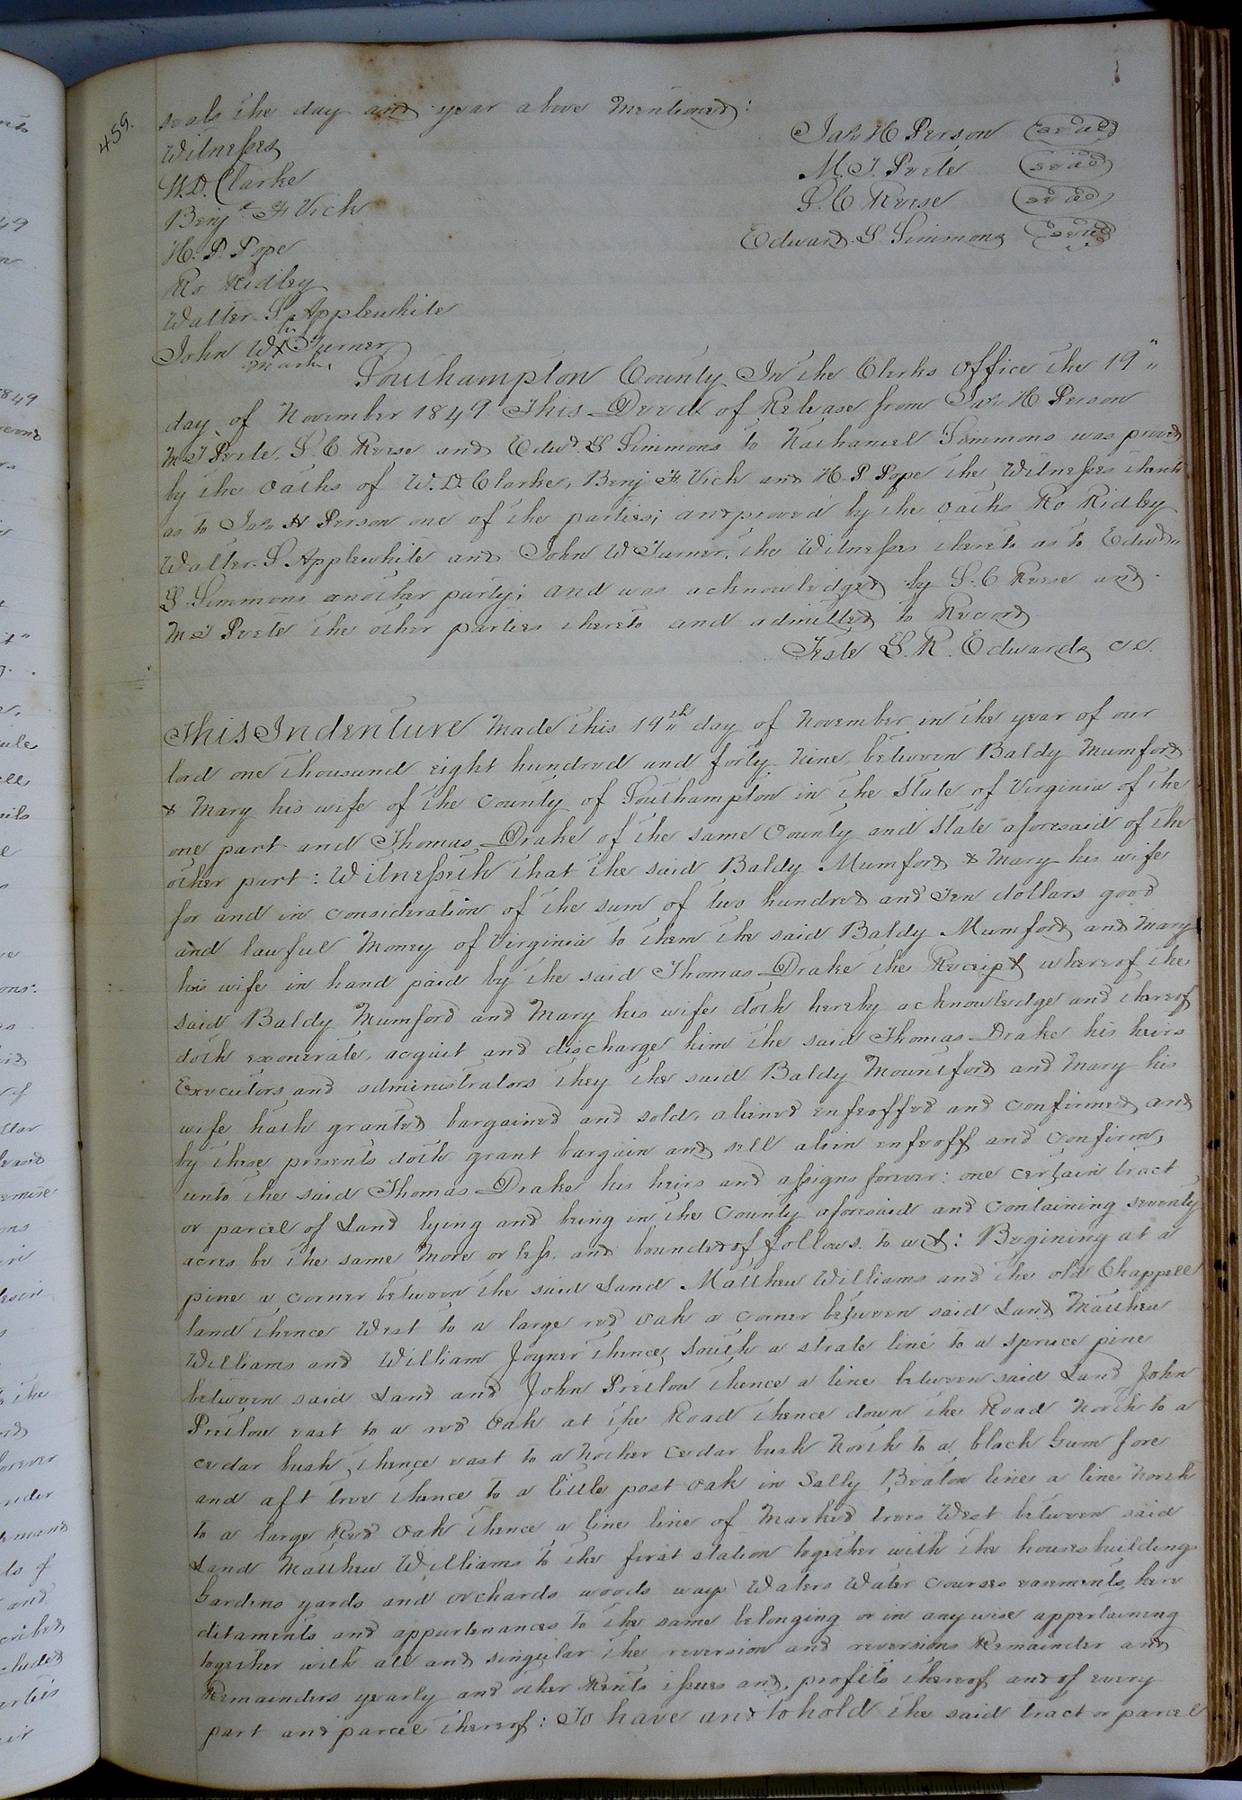 459.
seals the day and year above mentioned:
Witnesses
Jas H Person (seal)
W.D. Clarke
M. T. Peete (seal)
Benj F Vick
S. C Reese (seal)
H. P. Pope
Edward S Simmons (seal)
Ro Ridley
Walter S Applewhite
John W his x mark Turner
Southampton County In the Clerks Office the 19"
day of November 1849 This Deed of Release from Jas H Person
M T Peete, S. C. Reese and Edwd S Simmons to Nathaniel Simmons was proved
by the oaths of W. D. Clarke, Benj F Vick and H. P Pope the Witnesses thereto
as to Jas H Person one of the parties; and proved by the oaths Ro Ridley
Walter S Applewhite and John W Turner, the Witnesses thereto as to Edwd
S. Simmons another party; and was acknowledged by S. C Reese and
M T Peete the other parties thereto and admitted to Record
Teste L. R. Edwards CC.
This Indenture Made this 19th day of November in the year of our
lord one thousand eight hundred and forty Nine between Baldy Mumford
& Mary his wife of the County of Southampton in the State of Virginia of the
one part and Thomas Drake of the same County and State aforesaid of the
other part: Witnesseth that the said Baldy Mumford & Mary his wife
for and in consideration of the sum of two hundred and Ten dollars good
and lawful Money of Virginia to them the said Baldy Mumford and Mary
his wife in hand paid by the said Thomas Drake the Receipt whereof the
said Baldy Mumford and Mary his wife doth hereby acknowledge and thereof
doth exonerate, acquit and discharge him the said Thomas Drake his heirs
Executors and administrators they the said Baldy Mountford and Mary his
wife hath granted bargained and sold, aliened enfeoffed and confirmed and
by these presents doth grant bargain and sell alien enfeoff and confirm,
unto the said Thomas Drake his heirs and assigns forever: one certain tract
or parcel of Land lying and being in the County aforesaid and containing seventy
acres be the same More or less, and bounded of follows. to wit: Begining at a
pine a corner between the said Land Matthew Williams and the old Chappell
land thence West to a large red oak a corner between said Land Matthew
Williams and William Joyner thence South a strate line to a spruce pine
between said Land and John Pretlow thence a line between said Land John
Pretlow east to a red Oak at the Road thence down the Road North to a
cedar bush, thence east to a nother cedar bush North to a black Gum fore
and aft tree thence to a little post oak in Sally Beaton line a line North
to a large Red Oak thence a line line of Marked trees West between said
Land Matthew Williams to the first station together with the houses buildings
Gardens yards and orchards woods ways Waters Water courses easments, here
ditaments and appurtenances to the same belonging or in any wise appertaining
together with all and singular the reversion and reversions Remainder and
Remainders yearly and other Rents issues and profits thereof and of every
part and parcel thereof: To have and to hold the said tract or parcel